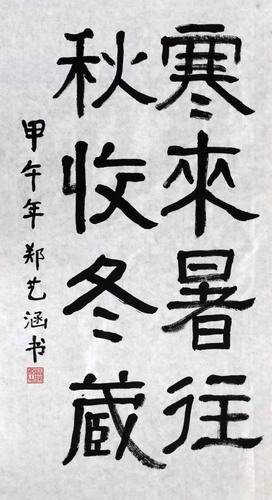 寒來暑往
秋收冬蔵
甲午年郑艺涵书